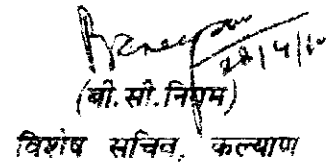 28/4/10
(बी. सी. निगम)
विशेष सचिव, कल्याण